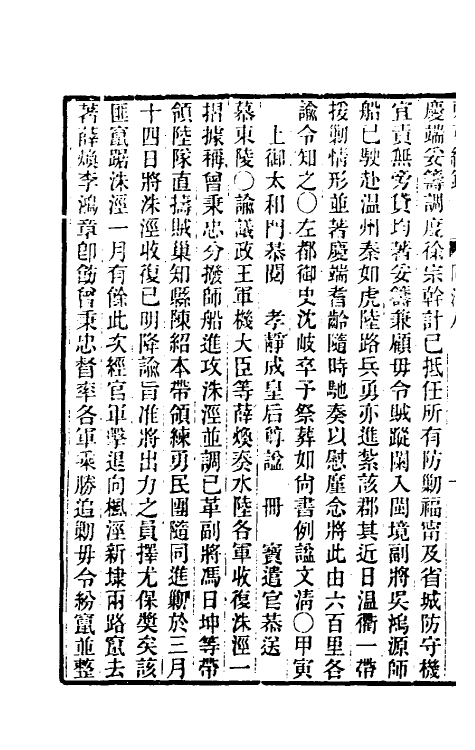 慶端妥籌調度徐宗幹計已抵任所有防勦福甯及省城防守機
宜責無旁貸均著妥籌兼顧毋令賊蹤闌入閩境副將吳鴻源師
船已駛赴温州秦如虎陸路兵勇亦進紮該郡其近日温衢一帶
援勦情形並著慶端耆齡隨時馳奏以慰廑念將此由六百里各
諭令知之○左都御史沈岐卒予祭葬如尚書例諡文清○甲寅
上御太和門恭閱　孝靜成皇后尊諡　冊　寶遣官恭送
慕東陵○諭議政王軍機大臣等薛煥奏水陸各軍收復洙涇一
摺據稱曾秉忠分撥師船進攻洙涇並調已革副將馮日坤等帶
領陸隊直擣賊巢知縣陳紹本帶領練勇民團隨同進勦於三月
十四日將洙涇收復已明降諭旨准將出力之員擇尤保獎矣該
匪竄踞洙涇一月有餘此次經官軍擊退向楓涇新埭兩路竄去
著薛煥李鴻章卽飭曾秉忠督率各軍乘勝追勦毋令紛竄並整